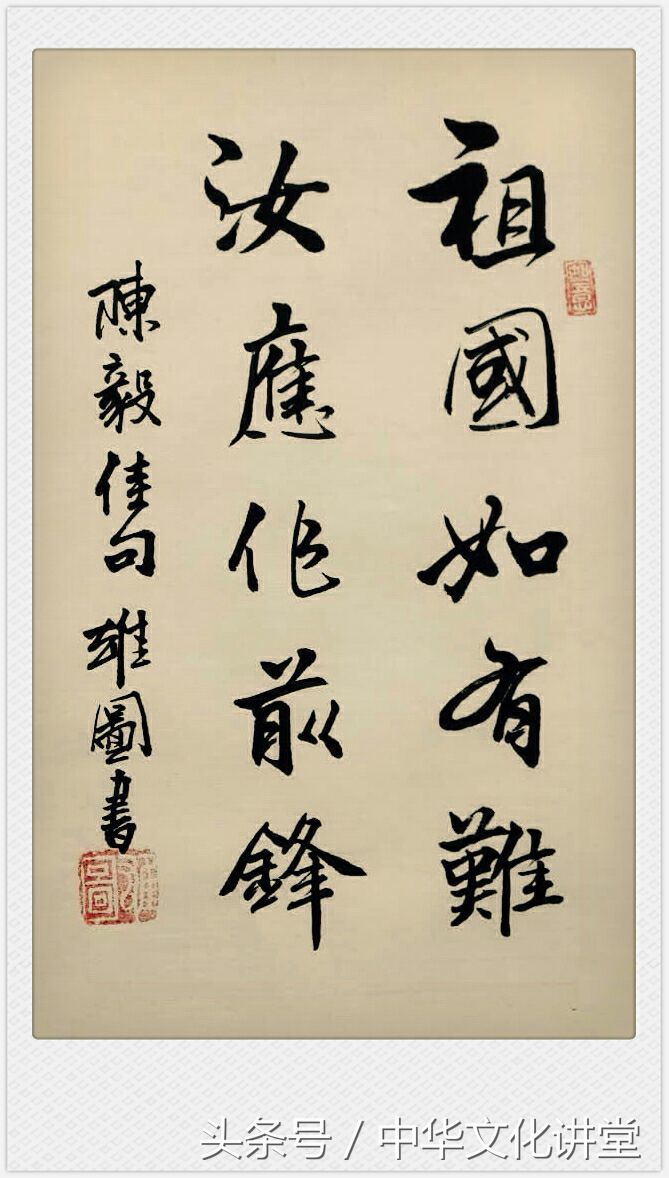 祖國如有難
汝應作前鋒
陳毅佳句 雄圖書
雄圖
头条号 / 中华文化讲堂